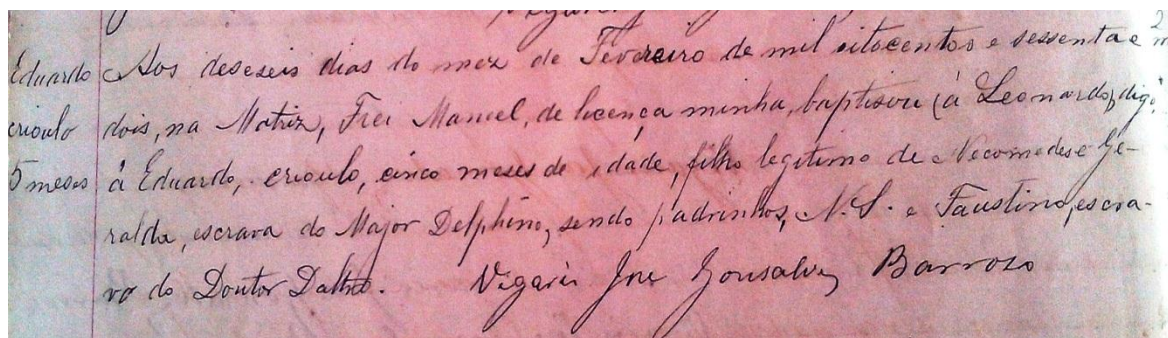 Eduardo
crioulo
5 meses
Aos deseseis dias do mez de Fevereiro de mil oitocentos e sessenta e
dois, na Matriz, Frei Manoel, de licença minha, baptisou (à Leonardo, digo,
à Eduardo, crioulo, cinco meses de idade, filho legitimo de Necomedes e Ge-
ralda, escrava do Major Delphino, sendo padrinhos, N. S. e Faustino, escra-
vo do Doutor Daltro. Vigario Jose Gonsalves Barroso